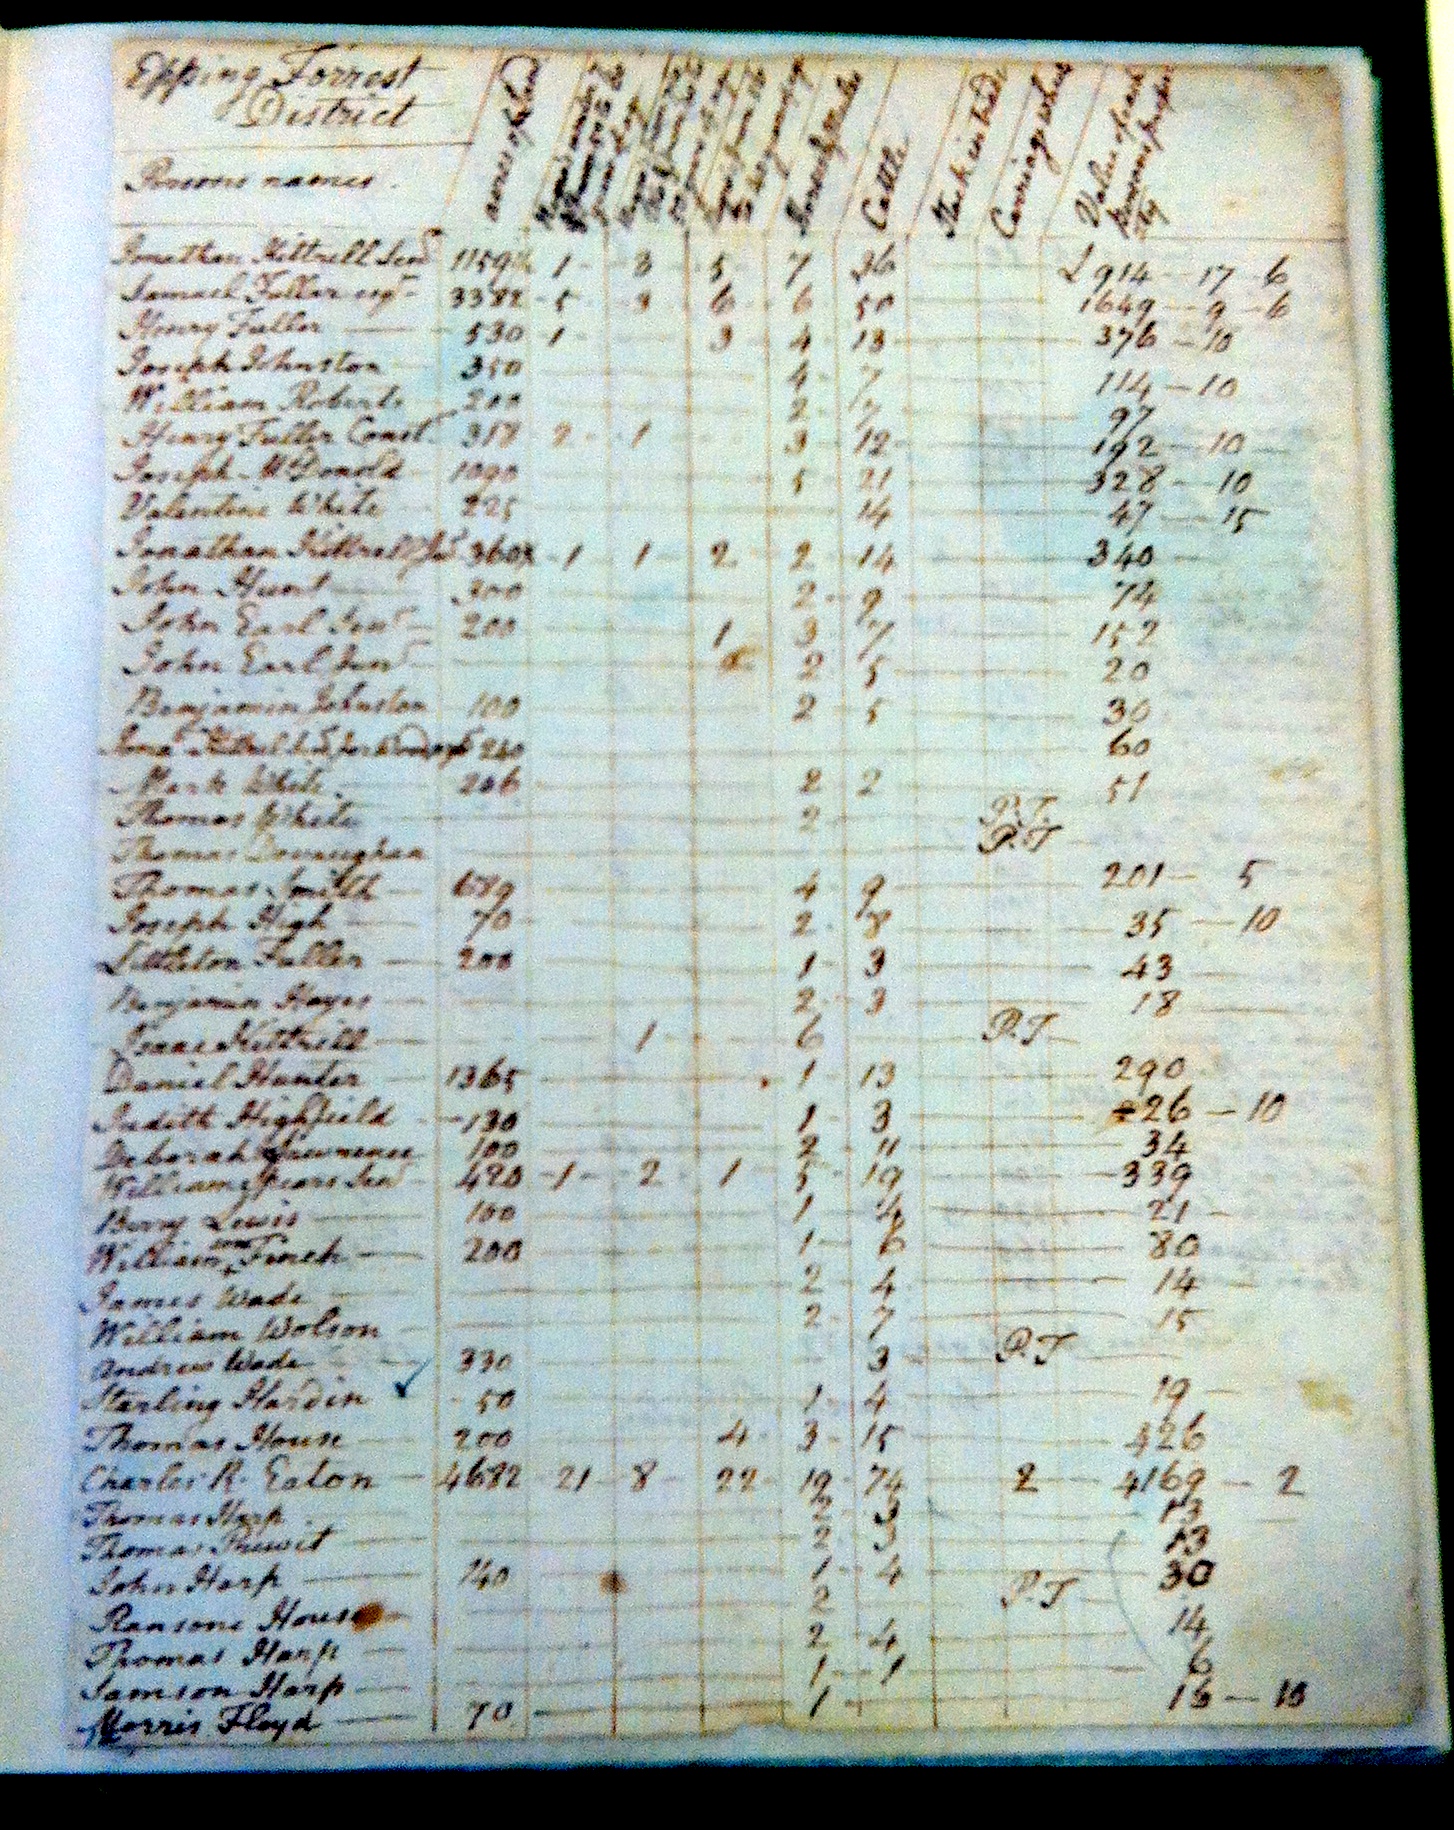 Epping Forrest
District
Persons names.
acres of Land
Cattle
Stock in trade
Carriage wheels
Jonathan Kittrell Senr 1159½ 1 3 5 7 36 £ 914 — 17 — 6
Samuel Fuller esqr 3382 5 3 6 6 50 1649 — 9 — 6
Henry Fuller 530 1 3 4 13 376 — 10
Joseph Johnston 350 4 7 114 — 10
William Roberts 200 2 7 97
Henry Fuller Const. 318 2 1 3 12 192 — 10
Joseph McDonold 1090 5 21 328 — 10
Valentine White 225 14 47 — 15
Jonathan Kittrell Jur 360½ 1 1 2 2 14 340
John Hunt 300 2 9 74
John Earl Senr 200 1 3 7 152
John Earl Junr 2 5 20
Benjamin Johnston 100 2 5 30
Jona. Kittrell 240 60
Mark White 206 2 2 51
Thomas White 2 P.T.
Thomas Donaughan P.T
Thomas Smith 689 4 9 201 — 5
Joseph High 70 2 8 35 — 10
Littleton Fuller 200 1 3 43
Benjamin Hayes 2 3 18
Isaac Kittrell 1 6 P.T
Daniel Hunter 1365 1 13 290
Judith Highfield 130 1 3 26 — 10
Deborah Lawrence 100 2 11 34
William Spears Senr 420 1 2 1 5 19 339
Berry Lewis 100 1 4 21
William Finch 200 1 6 80
James Wade 2 4 14
William Wolson 2 7 15
Andrew Wade 330 3 P.T
Starling Hardin 50 1 4 19
Thomas House 200 4 3 15 426
Charles R. Eaton 4682 21 8 22 19 74 2 4169 — 2
Thomas Harp 2 3 13
Thomas Pruwit 2 3 13
John Harp 140 1 4 30
Ransone House 2 P.T
Thomas Harp 2 4 14
Samson Harp 1 1 6
Morris Floyd 70 1 16 — 10